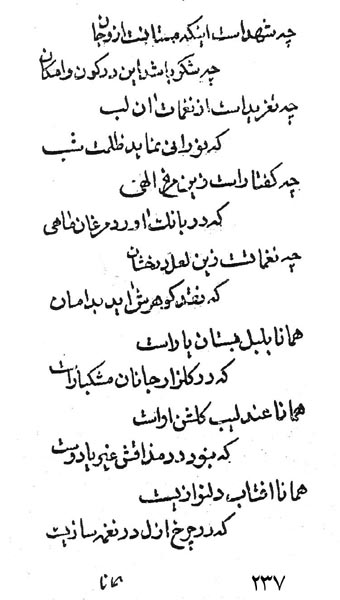 چه شهد است اینکه مستانست ازو جان
چه شکر باشد این در کون و امکان
چه تغرید است از نغمات ان لب
که نورانی نماید ظلمت شب
چه گفتار است زین مرغ الهی
که در بانك اورد مرغان ماهی
چه نغماتست زین لعل درخشان
که نقد کوهرش اید بدامان
همانا بلبل بستان یار است
که در کلزار جانان مشکبار است
همانا عندلیب کلشن اوست
که نبود در مذاقش غیر یا دوست
همانا افتاب دلنوازیست
که در چرخ ازل در نغمه سازیست
همانا
۲۳۷